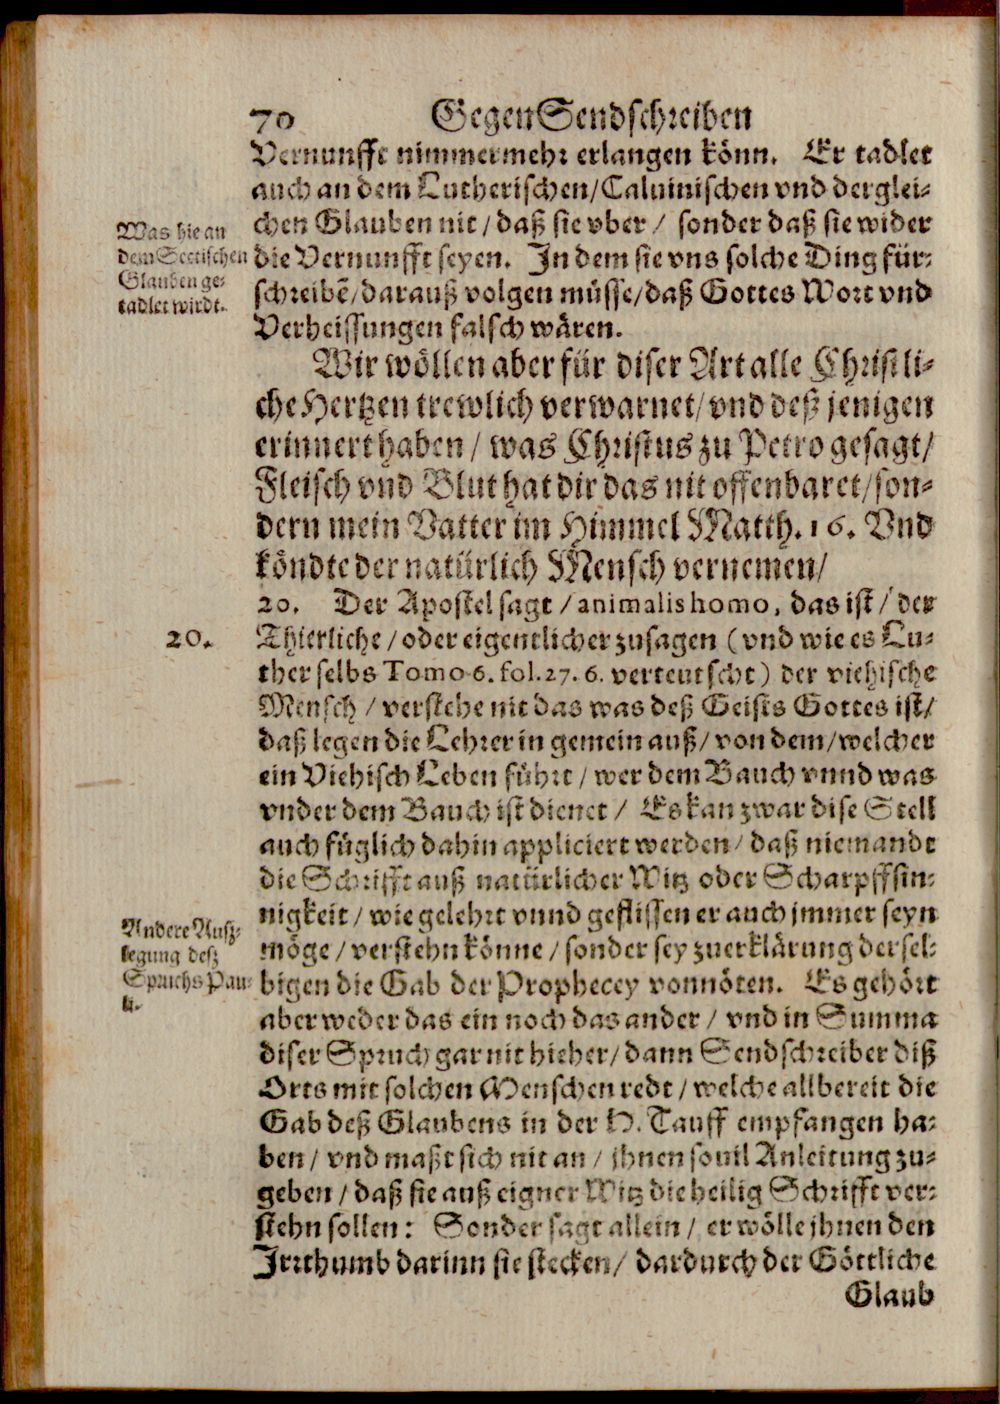 70 GegenSendschreiben
Vernunfft nimmermehr erlangen könn. Er tadlet
auch an dem Lutherischen/Caluinischen vnd derglei-
chen Glauben nit/daß sie vber/ sonder daß sie wider
die Vernunfft seyen. In dem sie vns solche Ding für-
schreibē/darauß volgen müsse/daß Gottes Wort vnd
Verheissungen falsch wären.
Was hie an
dem Sectischen
Glauben ge-
tadlet wirdt.
Wir wöllen aber für diser Art alle Christli-
che Hertzen trewlich verwarnet/vnd deß jenigen
erinnert haben/ was Christus zu Petro gesagt/
Fleisch vnd Blut hat dir das nit offenbaret/son-
dern mein Vatter im Himmel Matth. 16. Vnd
köndte der natürlich Mensch vernemen/
20. Der Apostel sagt/animalis homo, das ist/der
20.
Thierliche/oder eigentlicher zusagen (vnd wie es Lu-
ther selbs Tomo 6. fol. 27. 6. verteutscht) der viehische
Mensch/verstehe nit das was deß Geists Gottes ist/
daß legen die Lehrer in gemein auß/von dem/welcher
ein Viehisch Leben führt/wer dem Bauch vnnd was
vnder dem Bauch ist dienet/ Es kan zwar dise Stell
auch füglich dahin appliciert werden/daß niemandt
die Schrifft auß natürlicher Witz oder Scharpffsin-
nigkeit/wie gelehrt vnnd geflissen er auch jmmer seyn
möge/verstehn könne/sonder sey zuerklärung dersel-
bigen die Gab der Prophecey vonnöten. Es gehört
Andere Ausz-
legung desz
Spruchs Pau-
li.
aber weder das ein noch das ander/vnd in Summa
diser Spruch gar nit hieher/dann Sendschreiber diß
Orts mit solchen Menschen redt/welche allbereit die
Gab deß Glaubens in der H. Tauff empfangen ha-
ben/vnd maßt sich nit an/jhnen souil Anleitung zu-
geben/daß sie auß eigner Witz die heilig Schrifft ver-
stehn sollen: Sonder sagt allein/er wölle jhnen den
Irrthumb darinn sie stecken/ dardurch der Göttliche
Glaub